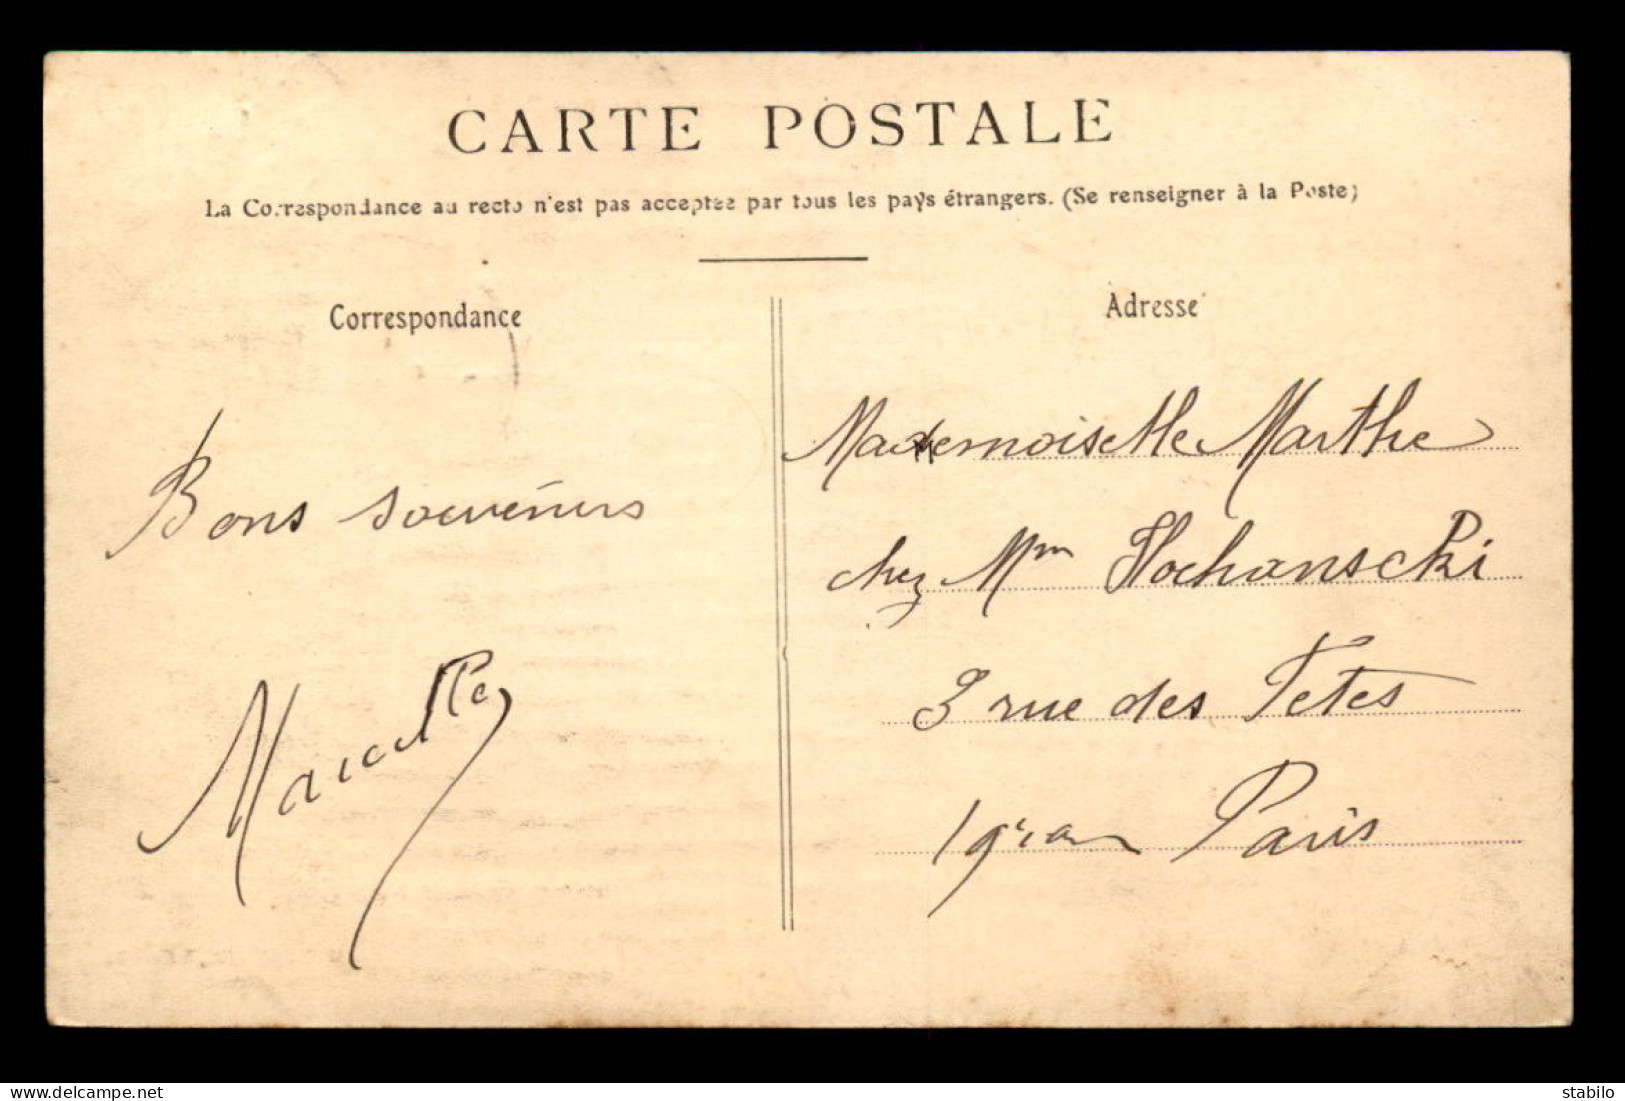 CARTE POSTALE
La Correspondance au recto n'est pas acceptée par tous les pays étrangers. (Se renseigner à la Poste)
Correspondance
Bons souvenirs
Adresse
Mademoiselle Marthe
chez Mm Hochanscki
3 rue des Fetes
Paris
www.delcampe.net
stabilo